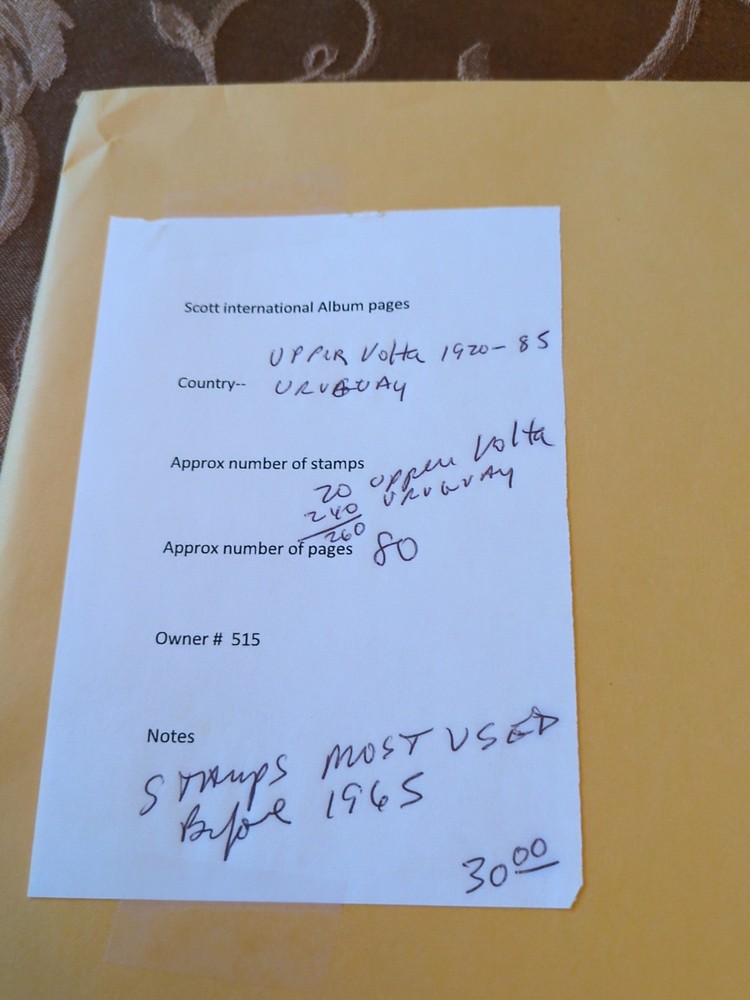 Scott international Album pages
UPPER Volta 1920-85
Country-- URUGUAY
Approx number of stamps
20 Upper Volta
240 URUGUAY
260
Approx number of pages 80
Owner # 515
Notes
STAMPS MOST USED
Before 1965
30 00